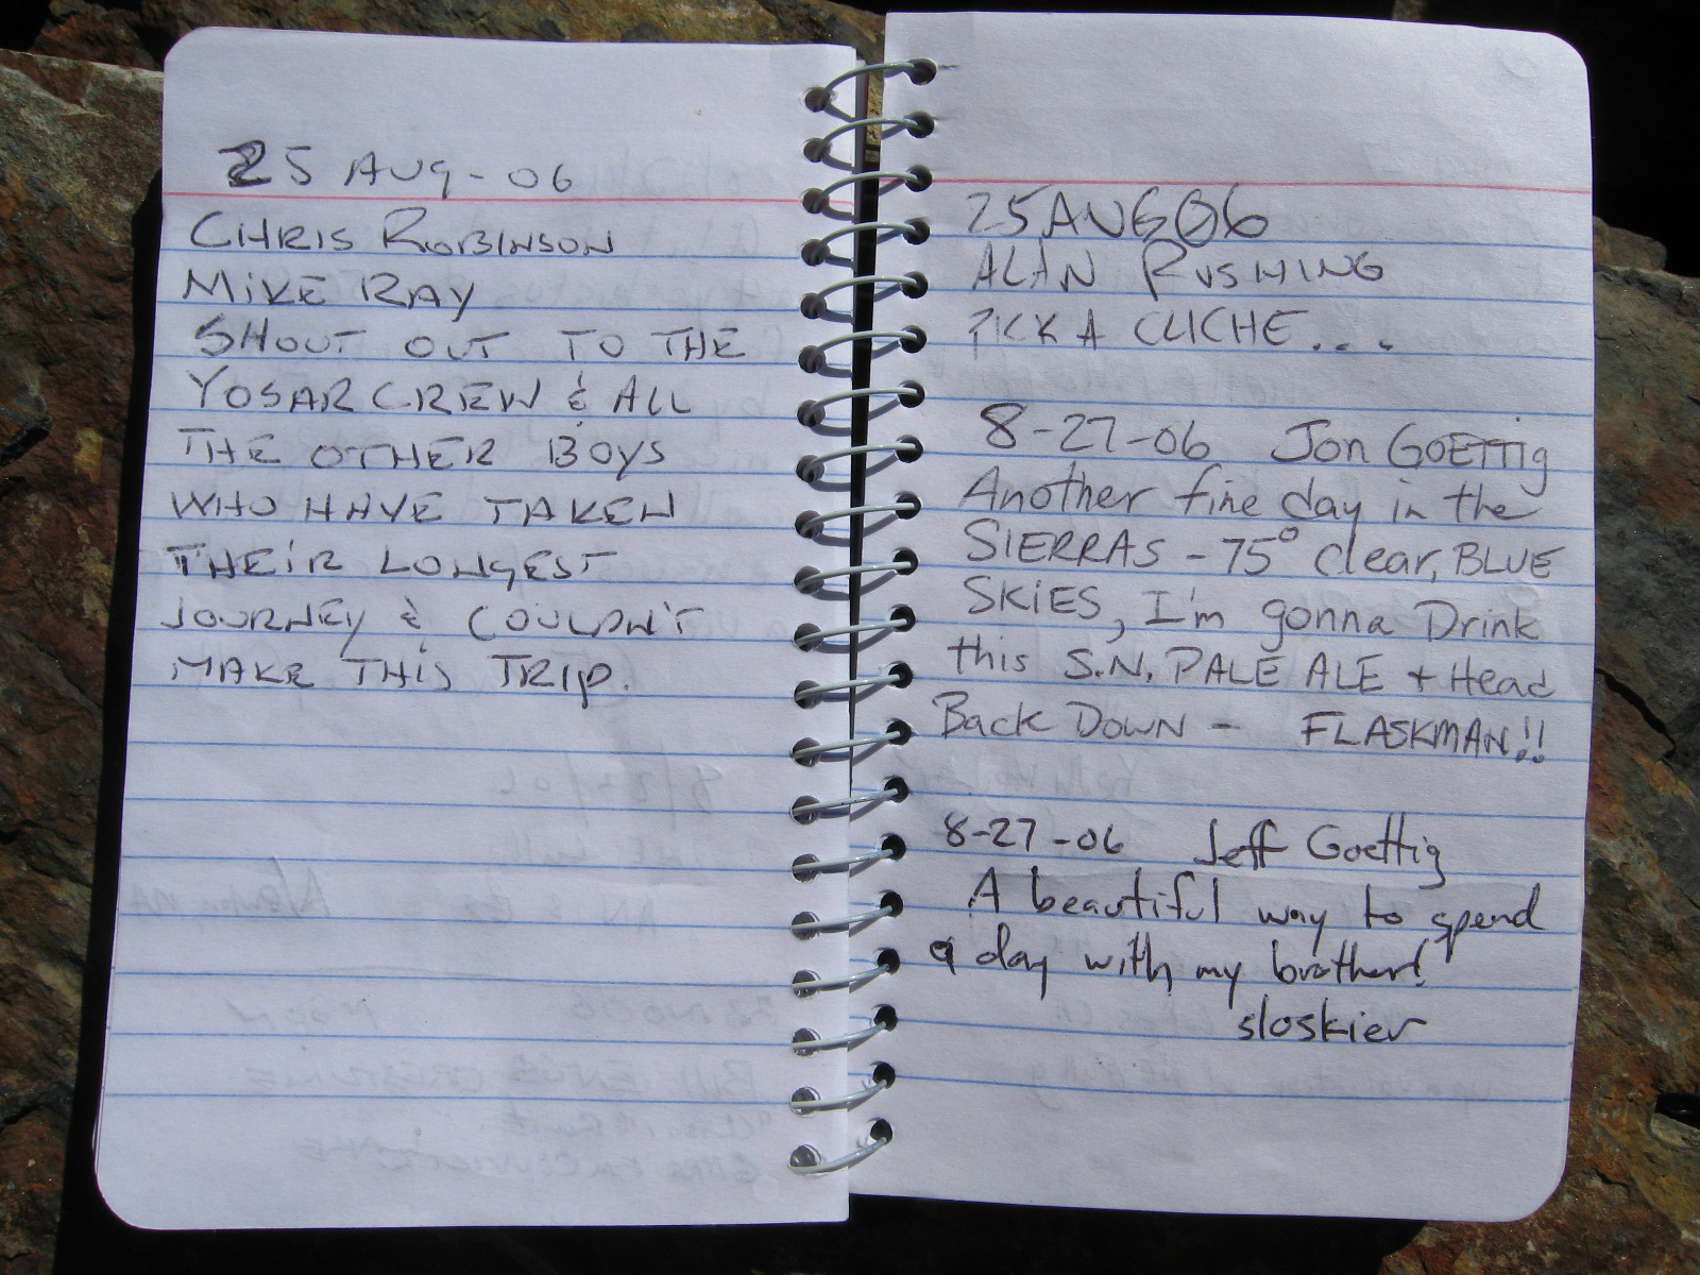 25 AUG-06
CHRIS ROBINSON
MIKE RAY
SHOUT OUT TO THE
YOSAR CREW & ALL
THE OTHER BOYS
WHO HAVE TAKEN
THEIR LONGEST
JOURNEY & COULDN'T
MAKE THIS TRIP.
25AUG06
ALAN RUSHING
PICK A CLICHE....
8-27-06 Jon GOETTIG
Another fine day in the
SIERRAS - 75° clear, BLUE
SKIES, I'm gonna Drink
this S.N. PALE ALE + Head
Back DOWN - FLASKMAN!!
8-27-06 Jeff Goettig
A beautiful way to spend
a day with my brother!
sloskier